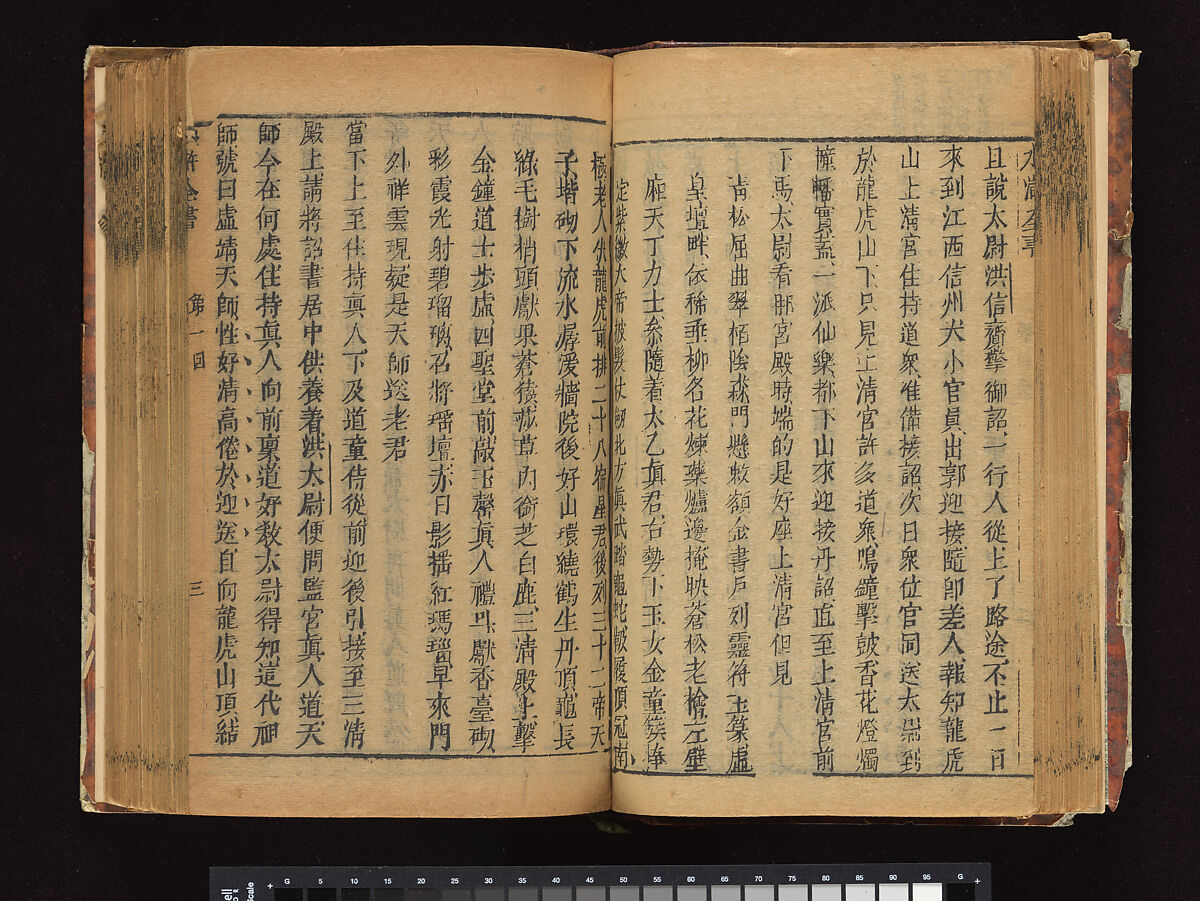 水滸全書
且說太尉洪信齎擎御詔一行人從上了路途不止一日
來到江西信州大小官員出郭迎接隨卽差人報知龍虎
山上清宮住持道衆准備接詔次日衆位官同送太尉到
於龍虎山下只見上清宮許多道衆鳴鐘擊鼓香花燈燭
幢幡寶蓋一派仙樂都下山來迎接丹詔直至上清宮前
下馬太尉看那宮殿時端的是好座上清宮但見
青松屈曲翠栢陰森門懸敕額金書戶列靈符玉篆虛
皇壇畔依稀垂柳名花煉藥爐邊掩映蒼松老檜左壁
廂天丁力士參隨着太乙眞君右勢下玉女金童簇捧
定紫微大帝披髮仗劒北方眞武踏龜蛇靸履頂冠南
極老人伏龍虎前排二十八宿星君後列三十二帝天
子堦砌下流水潺湲牆院後好山環繞鶴生丹頂龜長
綠毛樹梢頭獻果蒼猿莎草內銜芝白鹿三清殿上擊
金鐘道士步虛四聖堂前敲玉磬眞人禮斗獻香臺砌
彩霞光射碧瑠璃召將瑤壇赤日影搖紅瑪瑙早來門
外祥雲現疑是天師送老君
當下上至住持眞人下及道童侍從前迎後引接至三清
殿上請將詔書居中供養着洪太尉便問監宮眞人道天
師今在何處住持眞人向前稟道好敎太尉得知這代祖
師號曰虛靖天師性好清高倦於迎送自向龍虎山頂結
水滸全書
第一回
三